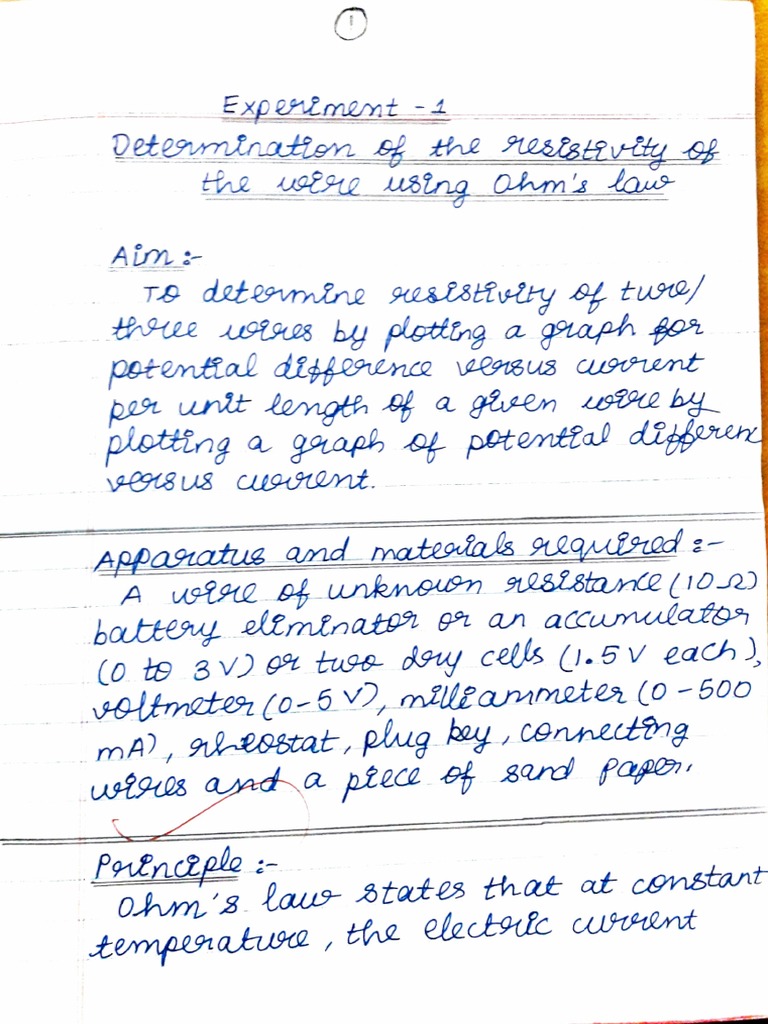 1
Experiment - 1
Determination of the resistivity of
the wire using Ohm's law
Aim :-
To determine resistivity of ture/
three wires by plotting a graph for
potential difference versus current
per unit length of a given wire by
plotting a graph of potential differenc
versus current.
Apparatus and materials required :-
A wire of unknown resistance (10 Ω)
battery eliminator or an accumulator
(0 to 3 V) or two dry cells (1.5 V each),
voltmeter (0-5 V), milliammeter (0 - 500
mA), rheostat, plug key, connecting
wires and a piece of sand paper.
Principle :-
Ohm's law states that at constant
temperature, the electric current